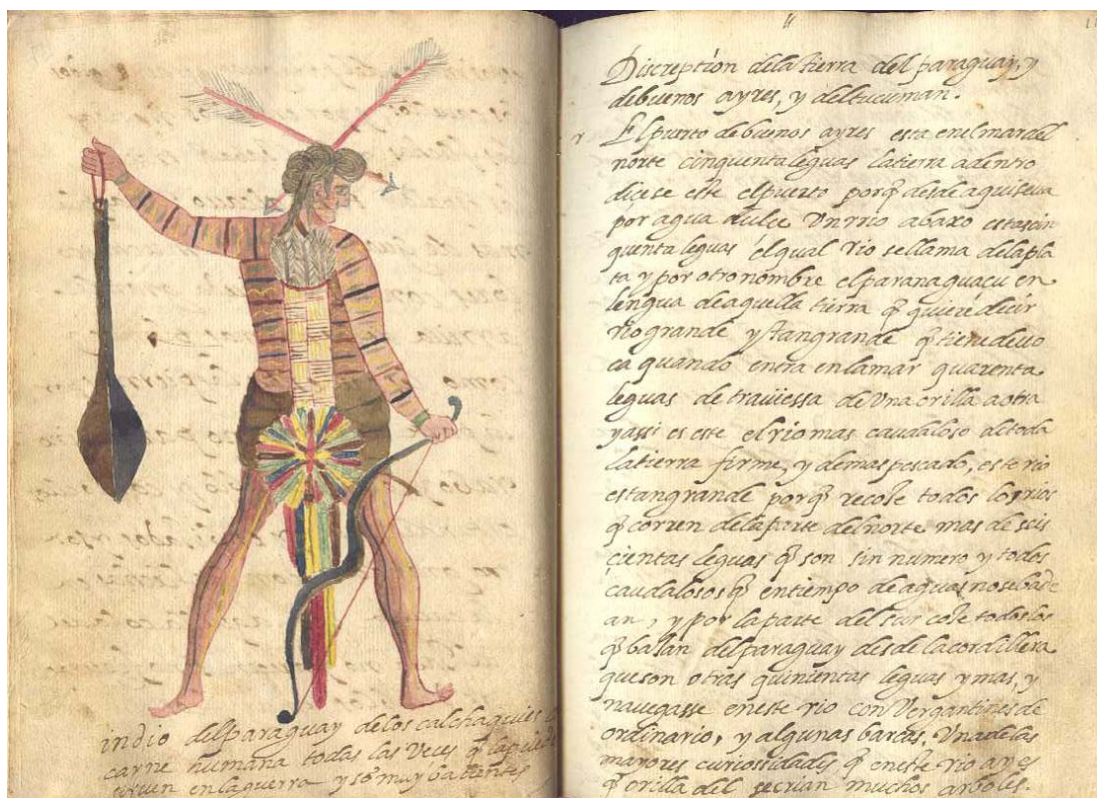 indio del paraguay de los calchaquies
carne humana todas las veces q̃ la puedē
en la guerra y sõ muy balientes
11
Discreption della tierra del paraguay, y
de buenos ayres, y del tucuman.
El puerto de buenos ayres esta en el mar del
norte cinquenta leguas la tierra adentro
dicese este el puerto porq̃ desde aqui se va
por agua dulce Un rrio abaxo estas cin
quenta leguas el qual rio se llama de la pla
ta y por otro nombre el paranaguaçu en
lengua de aquella tierra q̃ quiere decir
rio grande y tan grande q̃ tiene de vo
ca quando entra en la mar quarenta
leguas de traviessa de Una orilla a otra
y assi es este el rio mas caudaloso de toda
la tierra firme, y de mas pescado, este rio
es tan grande porq̃ recoxe todos los rios
q̃ corren de la parte del norte mas de seis
cientas leguas q̃ son sin numero y todos
caudalosos q̃ en tiempo de aguas no se bade
an, y por la parte del sur coxe todos los
q̃ baxan del paraguay desde la cordillera
que son otras quinientas leguas y mas, y
navegasse en este rio con Vergantines de
ordinario, y algunas barcas. Una de las
mayores curiossidades q̃ en este rio ay es
q̃ orilla del se crian muchos arboles.